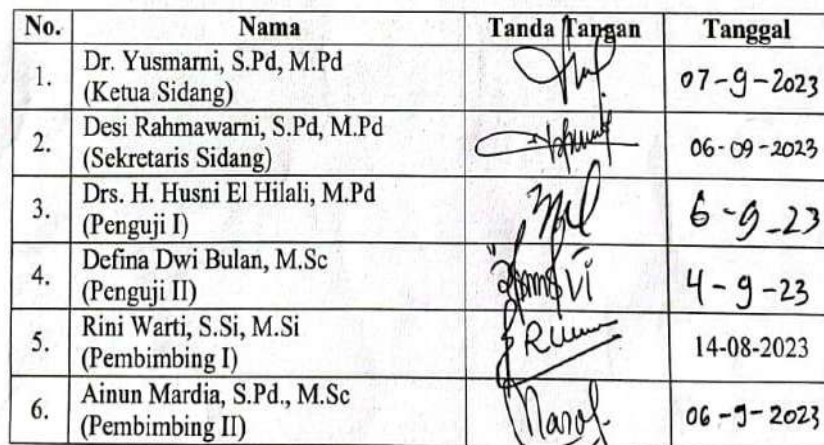 No. Nama Tanda Tangan Tanggal
1. Dr. Yusmarni, S.Pd, M.Pd
(Ketua Sidang) 07-9-2023
2. Desi Rahmawarni, S.Pd, M.Pd
(Sekretaris Sidang) 06-09-2023
3. Drs. H. Husni El Hilali, M.Pd
(Penguji I) 6-9-23
4. Defina Dwi Bulan, M.Sc
(Penguji II) 4-9-23
5. Rini Warti, S.Si, M.Si
(Pembimbing I) 14-08-2023
6. Ainun Mardia, S.Pd., M.Sc
(Pembimbing II) 06-9-2023